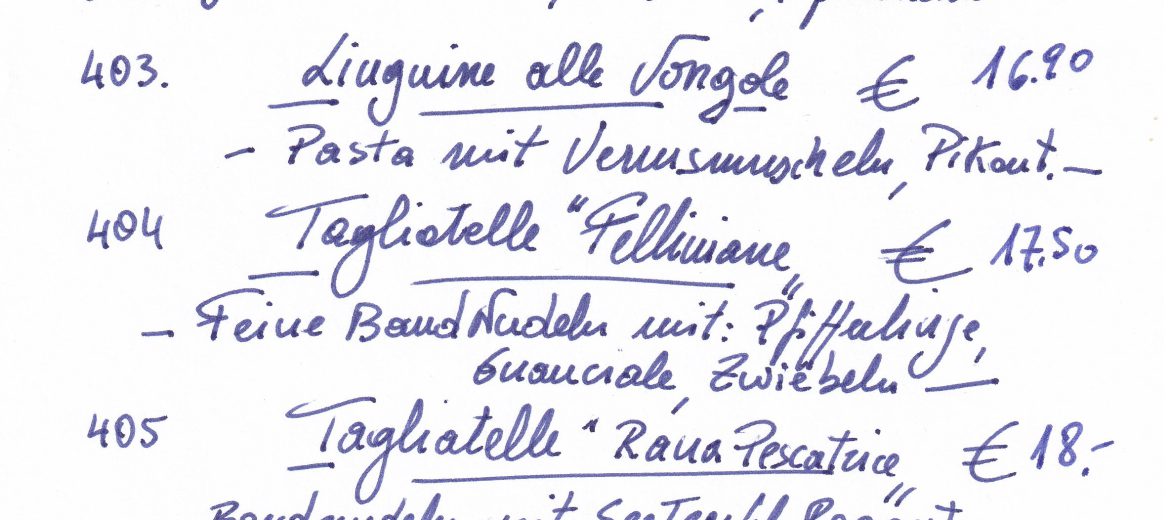 403. Linguine alle Vongole € 16.90
- Pasta mit Venusmuscheln, Pikant. -
404 Tagliatelle "Felliniane" € 17.50
- Feine BandNudeln mit: Pfifferlinge,
Guanciale, Zwiebeln -
405 Tagliatelle "Rana Pescatrice" € 18.-
Bandnudeln mit Seeteufel Ragout